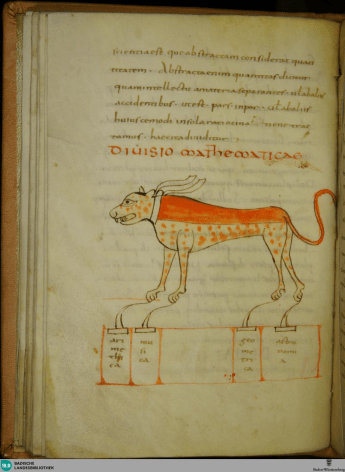 scientia est que abstractam considerat quan
titatem. Abstracta enim quantitas dicitur
quam intellectu a materia separantes ut ab aliis
accidentibus. ut est par inpar. ut ab aliis
huiuscemodi in sola ratiocinatione trac
tamus
DIVISIO MATHEMATICAE
arithmetica
musica
geometrica
astronomia
BADISCHE
LANDESBIBLIOTHEK
Baden-Württemberg